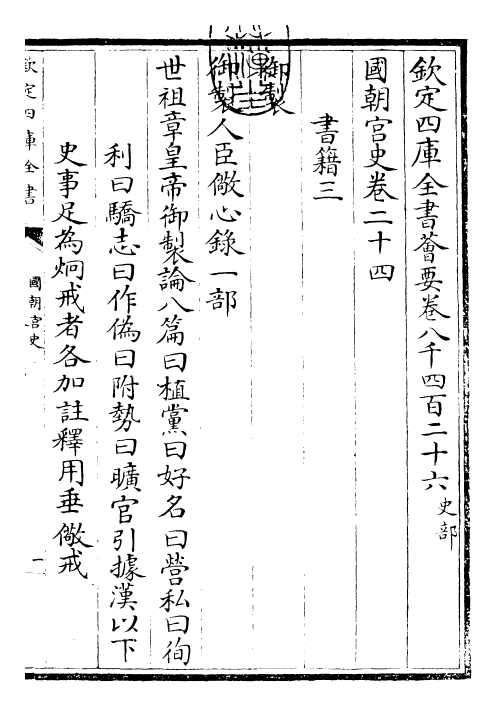 欽定四庫全書薈要卷八千四百二十六 史部
國朝宮史卷二十四
書籍三
御製
御製人臣儆心錄一部
世祖章皇帝御製論八篇曰植黨曰好名曰營私曰徇
利曰驕志曰作偽曰附勢曰曠官引據漢以下
史事足為炯戒者各加註釋用垂儆戒
欽定四庫全書
國朝宮史
一